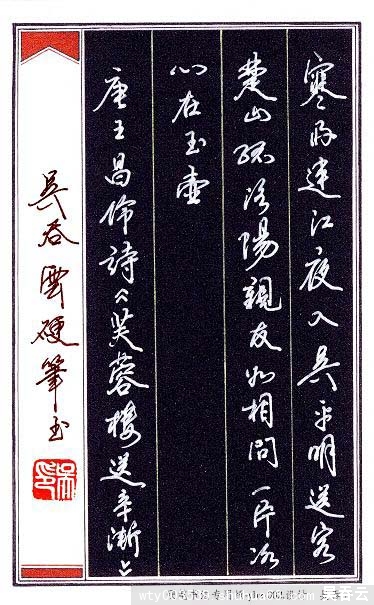 寒雨連江夜入吳平明送客
楚山孤洛陽親友如相問一片冰
心在玉壺
唐王昌伶詩《芙蓉樓送辛漸》
吳吞雲硬筆书
吴吞云